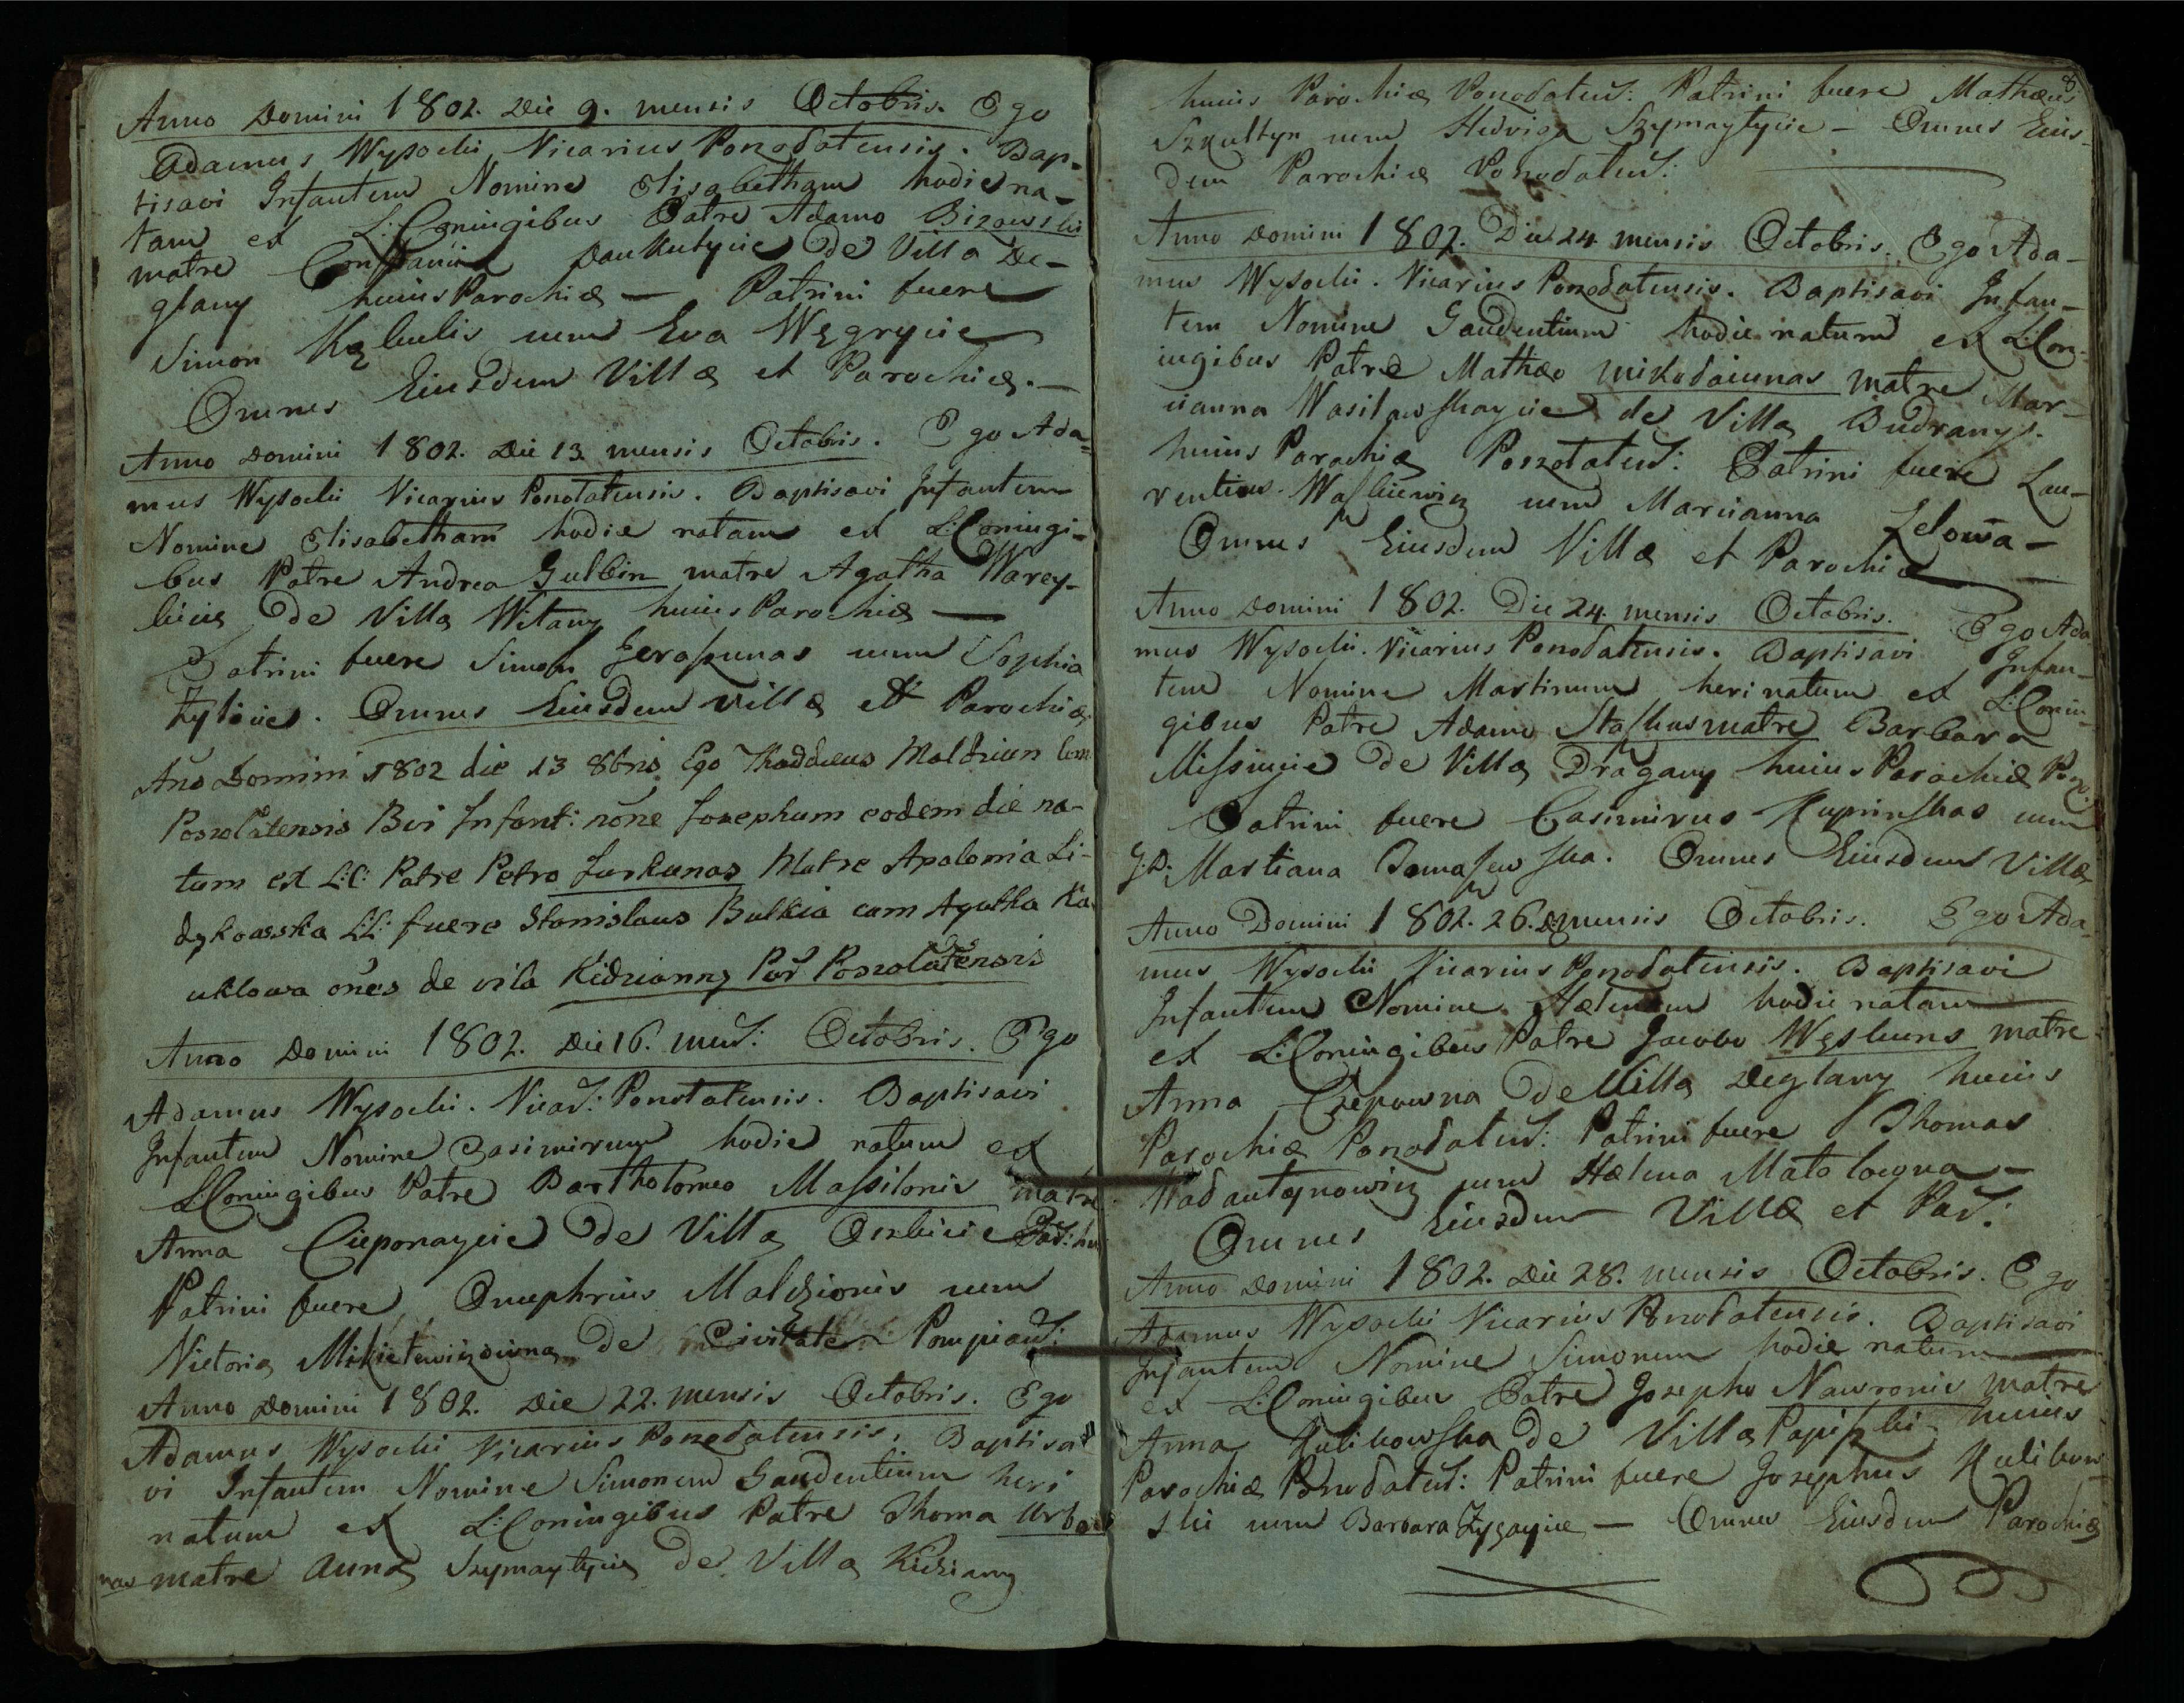 Anno Domini 1802. Die 9. mensis Octobris. Ego
Adamus Wysocki Vicarius Poszolatensis. Bap-
tisavi Infantem Nomine Elisabetham hodie na-
tam ex L:Coniugibus Patre Adamo Bizowski
matre Constantia Daukutycie de Villa De-
glany huius Parochiæ — Patrini fuere
Simon cum Eva Węgrycie
Omnes Eiusdem Villæ et Parochiæ. —
Anno Domini 1802. Die 13 mensis Octobris. Ego Ada-
mus Wysocki Vicarius Poszolatensis. Baptisavi Infantem
Nomine Elisabetham hodie natam ex L:Coniugi-
bus Patre Andrea Gulbin matre Agatha Warey-
kicia de Villa Witany huius Parochiæ —
Patrini fuere Simon Geraszunas cum Sophia
Żylicie. Omnes Eiusdem Villæ et Parochiæ
Año Domini 1802 die 13 8bris Ego Thaddæus Maldziun Com
Poszolatensis Bvi Infant: nōne Josephum eodem die na-
tum ex L:C: Patre Petro Jurkunas Matre Apalonia Li-
dykowska L:L: fuere Stanislaus Butkia cum Agatha Ka-
uklowa oñes de vila Kidziany Par Poszolatensis
Anno Domini 1802. Die 16. mens: Octobris. Ego
Adamus Wysocki. Vicar: Poszolatensis. Baptisavi
Infantem Nomine Casimirum hodie natum ex
L:Coniugibus Patre Bartholomeo Massilonis matre
Anna Cieponaycie de Villa Par: hu
Patrini fuere Onuphrius Maldzionis cum
Victoria Mikietewiczowna de Civitate Pompian:
Anno Domini 1802. Die 22. mensis Octobris. Ego
Adamus Wysocki Vicarius Poszolatensis. Baptisa-
vi Infantem Nomine Simonem Gaudentium heri
natum ex L:Coniugibus Patre Thoma Urbo-
nas matre Anna Szymaytycia de Villa Kidziany
8
huius Parochiæ Poszolatens: Patrini fuere Mathæus
Szkultyn cum Hedviga Szymaytycie — Omnes Eius-
dem Parochiæ Poszolatens:
Anno Domini 1802. Die 24. mensis Octobris. Ego Ada-
mus Wysocki. Vicarius Poszolatensis. Baptisavi Infan-
tem Nomine Gaudentium hodie natum ex L:Con-
iugibus Patre Mathæo Mikolaiunas matre Mar-
cianna Wasilawskaycie de Villa Budrany
huius Parochiæ Poszolatens: Patrini fuere Lau-
rentius Waszkiewicz cum Marcianna Lelowa —
Omnes Eiusdem Villæ et Parochiæ
Anno Domini 1802. Die 24. mensis Octobris. Ego Ada
mus Wysocki. Vicarius Poszolatensis. Baptisavi Infan-
tem Nomine Martinum heri natum ex L:Coniu-
gibus Patre Adamo Staszkus matre Barbara
Missiucie de Villa Dragany huius Parochiæ Posz.
Patrini fuere Casimirus Kuprinskas cum
G.D. Martiana Tomaszewska. Omnes Eiusdem Villæ
Anno Domini 1802. 26. D. mensis Octobris. Ego Ada-
mus Wysocki Vicarius Poszolatensis. Baptisavi
Infantem Nomine Hælenam hodie natam
ex L:Coniugibus Patre Jacobo Węskuns matre
Anna Czepowna de Villa Deglany huius
Parochiæ Poszolatens: Patrini fuere Thomas
cum Hælena
Omnes Eiusdem Villæ et Par:
Anno Domini 1802. Die 28. mensis Octobris. Ego
Adamus Wysocki Vicarius Poszolatensis. Baptisavi
Infantem Nomine Simonem hodie natum
ex L:Coniugibus Patre Josepho Nawronis matre
Anna Kulikowska de Villa Papiszki huius
Parochiæ Poszolatens: Patrini fuere Josephus Kulikow-
ski cum Barbara Zygaycie — Omnes Eiusdem Parochiæ